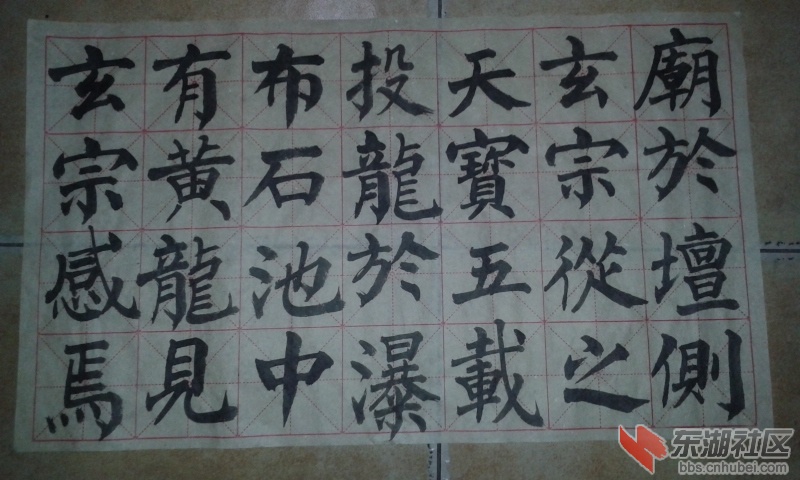 廟於壇側
玄宗從之
天寶五載
投龍於瀑
布石池中
有黃龍見
玄宗感焉
东湖社区
bbs.cnhubei.com